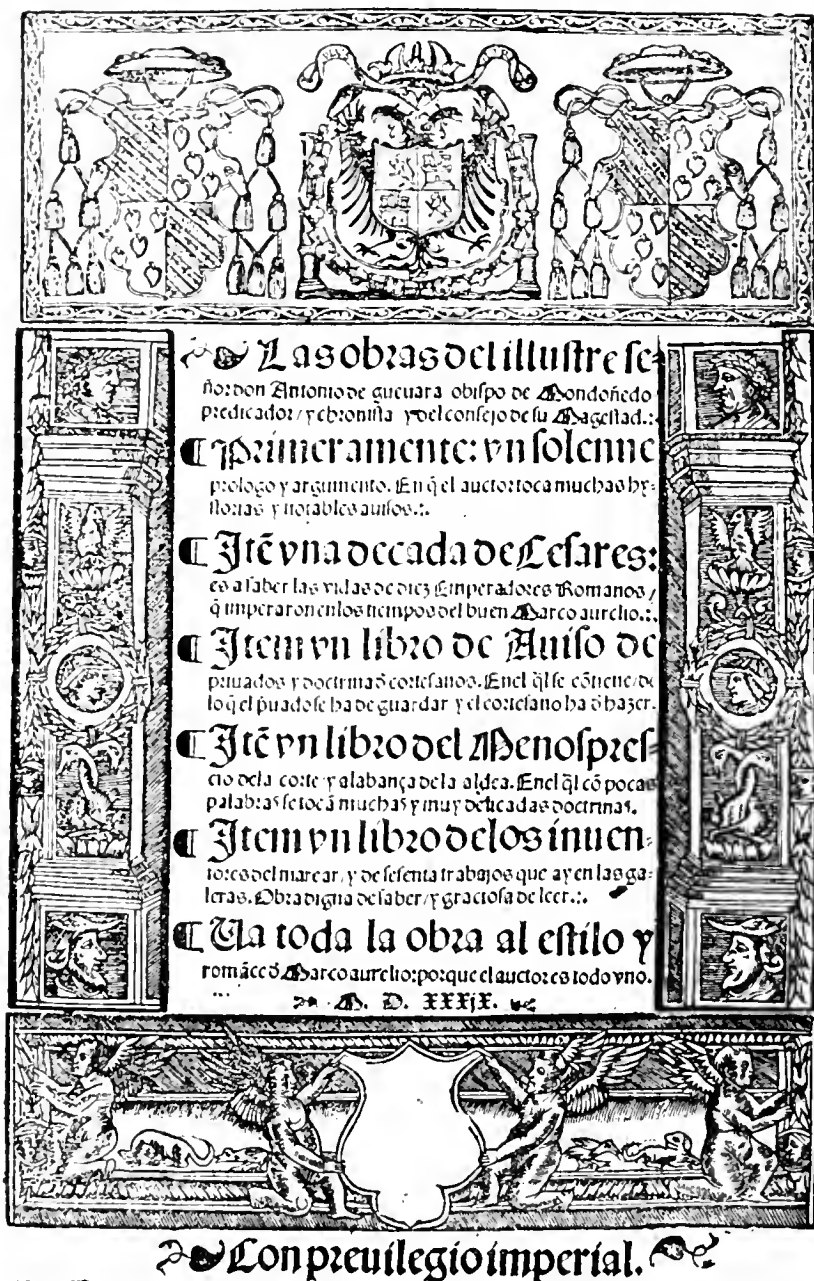 Las obras del illustre se-
ñor don Antonio de gueuara obispo de Mondoñedo
predicador/ y chronista y del consejo de su Magestad.:
¶ Primeramente: vn solenne
prologo y argumento. En q̃ el auctor toca muchas hy-
storias y notables auisos.:.
¶ Itẽ vna decada de Cesares:
es a saber las vidas de diez Emperadores Romanos/
q̃ imperaron enlos tiempos del buen Marco aurelio.:.
¶ Item vn libro de Auiso de
priuados y doctrina d̃ cortesanos. Enel q̃l se cõtiene/ de
lo q̃ el p̃uado se ha de guardar y el cortesano ha d̃ hazer.
¶ Itẽ vn libro del Menospres-
cio dela corte y alabança dela aldea. Enel q̃l cõ pocas
palabras se tocã muchas y muy delicadas doctrinas.
¶ Item vn libro delos inuen-
tores del marear/ y de sesenta trabajos que ay en las ga-
leras. Obra digna de saber/ y graciosa de leer.:.
¶ Va toda la obra al estilo y
romãce d̃ Marco aurelio: porque el auctor es todo vno.
M. D. XXXiX.
Con preuilegio imperial.